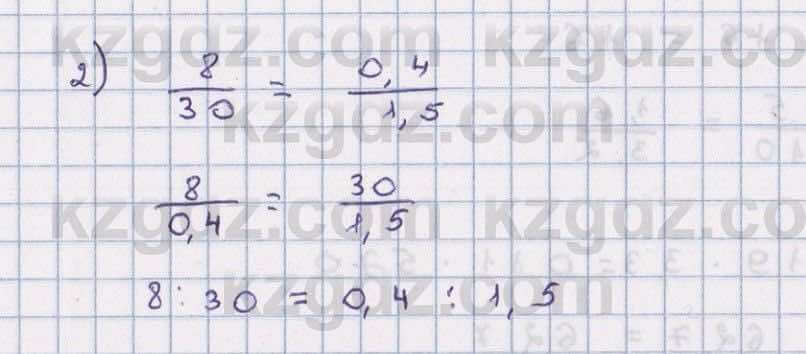 kzgdz.com kzgdz.co
2) 8/30 = 0,4/1,5
kzgdz.com
8/0,4 = 30/1,5
kzgdz.com kzgdz.co
8 : 30 = 0,4 : 1,5
kzgdz.com